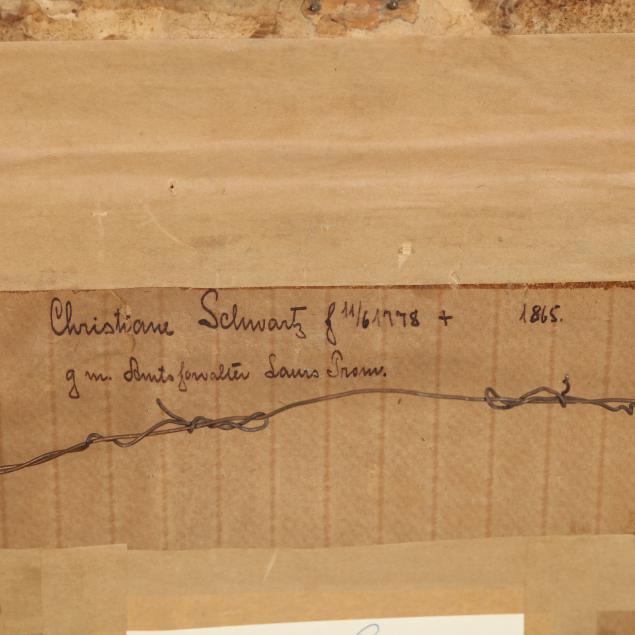 Christiane Schwartz f 11/6 1778 + 1865.
g m. Amtsforvalter Laurs Prom.